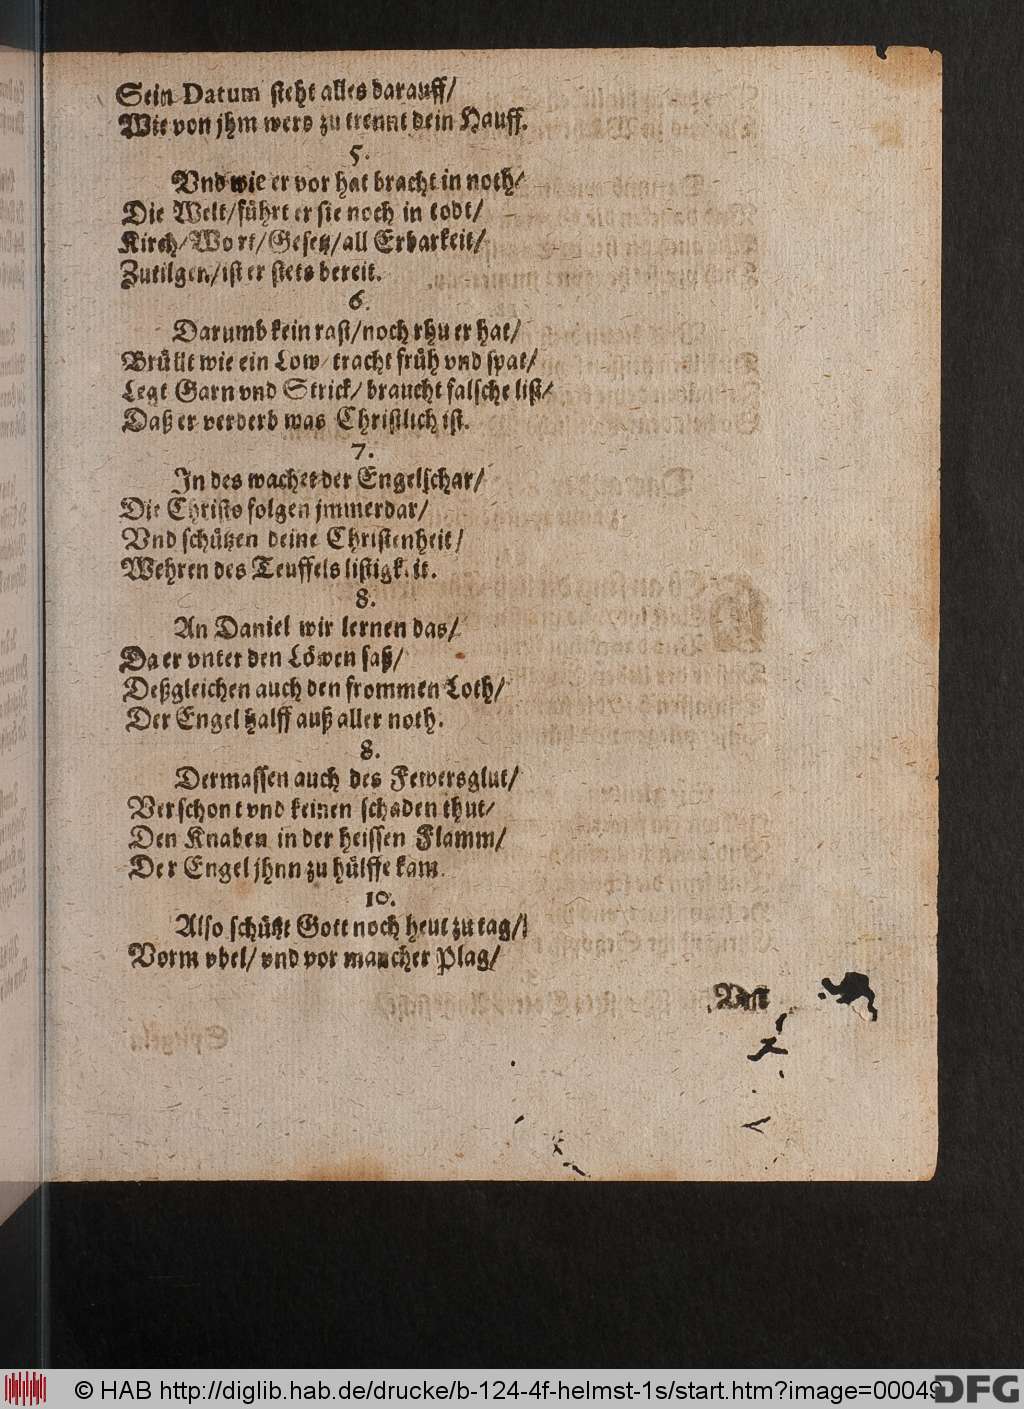 Sein Datum steht alles darauff/
Wie von jhm werd zu trennt dein Hauff.
5.
Vnd wie er vor hat bracht in noth/
Die Welt/führt er sie noch in todt/
Kirch/Wort/Gesetz/all Erbarkeit/
Zutilgen/ist er stets bereit.
6.
Darumb kein rast/noch rhu er hat/
Brüllt wie ein Low/tracht früh vnd spat/
Legt Garn vnd Strick/braucht falsche list/
Daß er verderb was Christlich ist.
7.
In des wachet der Engelschar/
Die Christo folgen jmmerdar/
Vnd schützen deine Christenheit/
Wehren des Teuffels listigk.it.
8.
An Daniel wir lernen das/
Da er vnter den Löwen saß/
Deßgleichen auch den frommen Loth/
Der Engel halff auß aller noth.
8.
Dermassen auch des Fewersglut/
Verschont vnd keinen schaden thut/
Den Knaben in der heissen Flamm/
Der Engel jhnn zu hülffe kam.
10.
Also schützt Gott noch heut zu tag/
Vorm vbel/vnd vor mancher Plag/
© HAB http://diglib.hab.de/drucke/b-124-4f-helmst-1s/start.htm?image=00049
DFG